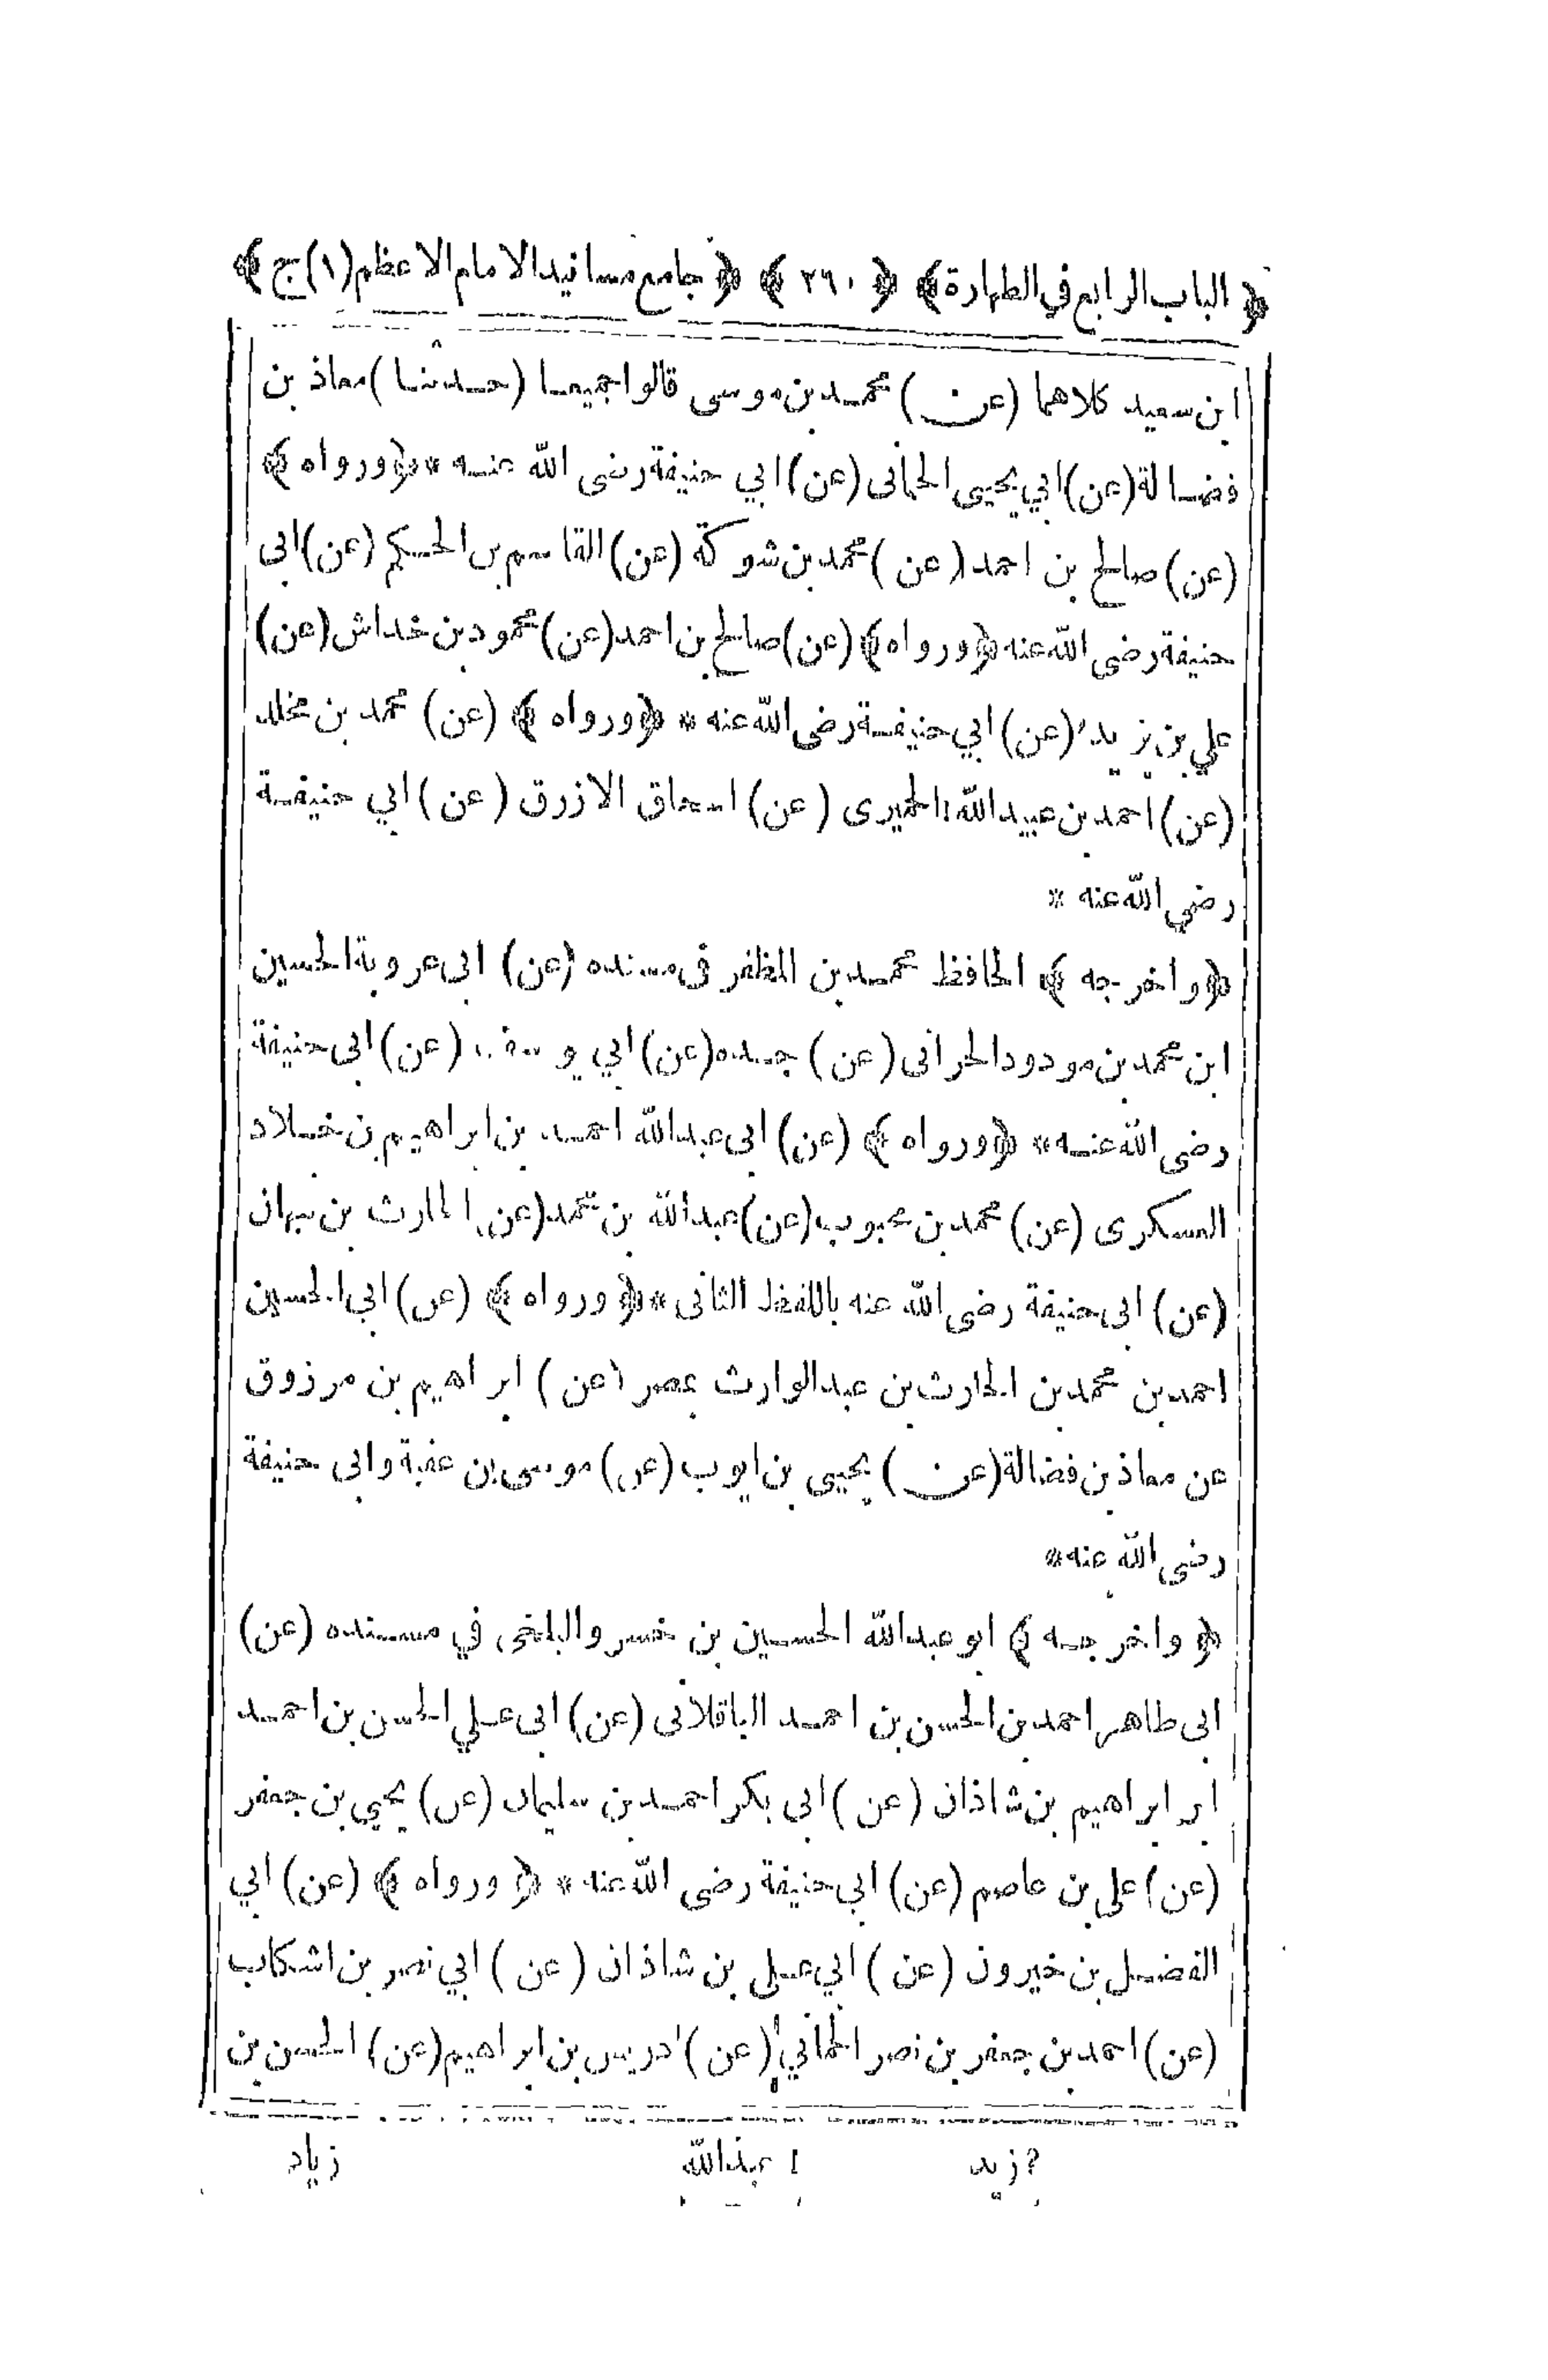 ﴿ الباب الرابع في الطهارة ﴾ ﴿ ٢٦٠ ﴾ ﴿ جامع مسانيد الامام الاعظم (١) ج ﴾
ابن سعيد كلاهما (عن) محمد بن موسى قالوا جميعا (حدثنا) معاذ بن
فضالة (عن) ابي يحيى الحمانى (عن) ابي حنيفة رضى الله عنه * ﴿ ورواه ﴾
(عن) صالح بن احمد (عن) محمد بن شوكة (عن) القاسم بن الحكم (عن) ابى
حنيفة رضى الله عنه ﴿ ورواه ﴾ (عن) صالح بن احمد (عن) محمود بن خداش (عن)
علي بن يزيد (عن) ابي حنيفة رضى الله عنه * ﴿ ورواه ﴾ (عن) محمد بن مخلد
(عن) احمد بن عبيد الله الحيرى (عن) اسحاق الازرق (عن) ابي حنيفة
رضي الله عنه *
﴿ واخرجه ﴾ الحافظ محمد بن المظفر فى مسنده (عن) ابى عروبة الحسين
ابن محمد بن مودود الحرانى (عن) جده (عن) ابي يوسف (عن) ابى حنيفة
رضى الله عنه * ﴿ ورواه ﴾ (عن) ابى عبد الله احمد بن ابراهيم بن خلاد
العسكرى (عن) محمد بن محبوب (عن) عبد الله بن محمد (عن) الحارث بن نبهان
(عن) ابى حنيفة رضى الله عنه باللفظ الثانى * ﴿ ورواه ﴾ (عن) ابي الحسين
احمد بن محمد بن الحارث بن عبد الوارث بمصر (عن) ابراهيم بن مرزوق
عن معاذ بن فضالة (عن) يحيى بن ايوب (عن) موسى بن عقبة وابى حنيفة
رضى الله عنه *
﴿ واخرجه ﴾ ابو عبد الله الحسين بن خسرو البلخى في مسنده (عن)
ابى طاهر احمد بن الحسن بن احمد الباقلانى (عن) ابى علي الحسن بن احمد
ابن ابراهيم بن شاذان (عن) ابى بكر احمد بن سليمان (عن) يحيى بن جعفر
(عن) على بن عاصم (عن) ابى حنيفة رضى الله عنه * ﴿ ورواه ﴾ (عن) ابي
الفضل بن خيرون (عن) ابي على بن شاذان (عن) ابي نصر بن اشكاب
(عن) احمد بن جعفر بن نصر الحمانى (عن) ادريس بن ابراهيم (عن) الحسن بن
زيد عبد الله زياد